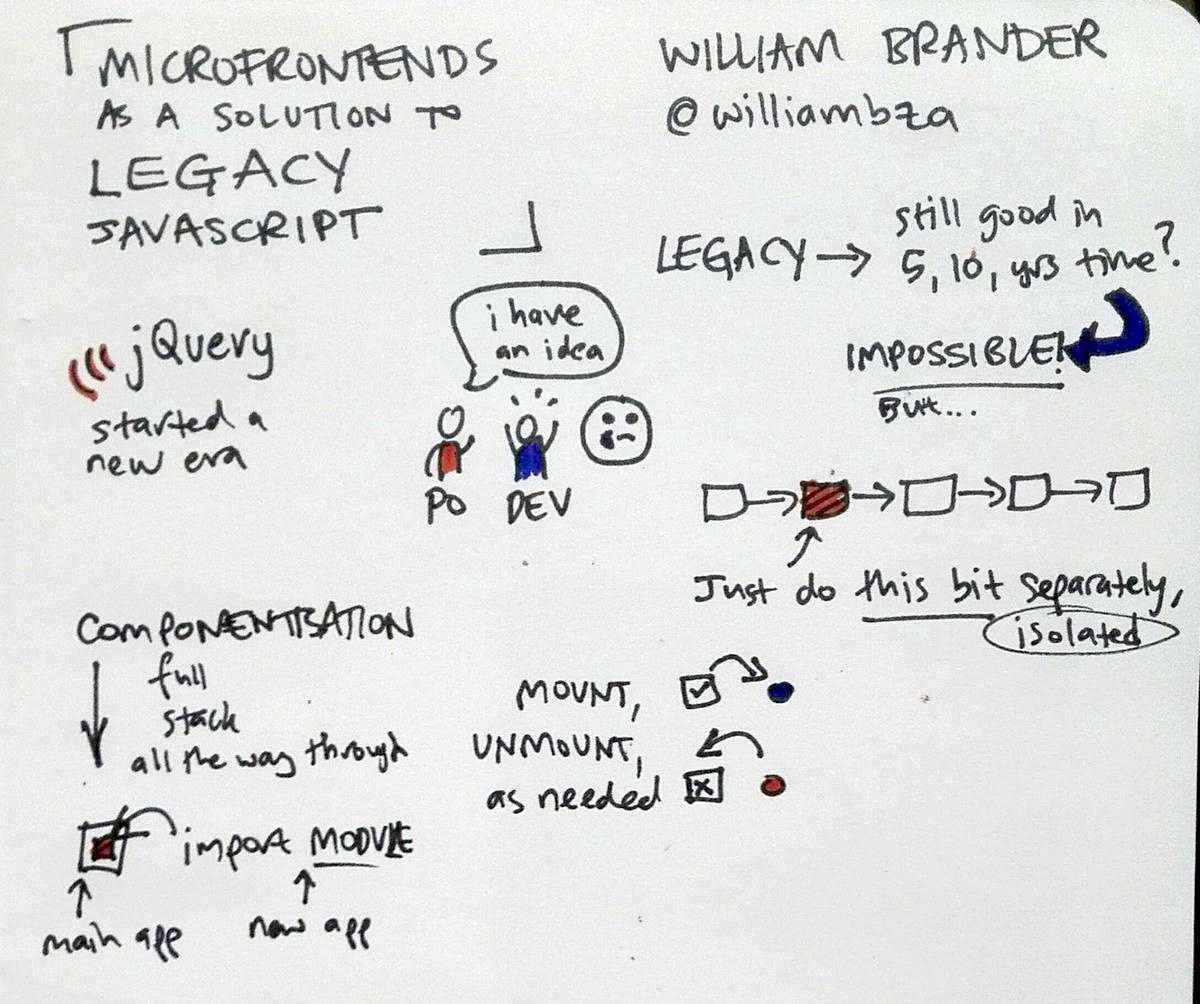 MICROFRONTENDS
AS A SOLUTION TO
LEGACY
JAVASCRIPT
WILLIAM BRANDER
@williambza
LEGACY → still good in
5, 10, yrs time?
IMPOSSIBLE!
But...
jQuery
started a
new era
i have
an idea
PO DEV
Just do this bit separately,
isolated
COMPONENTISATION
full
stack
all the way through
import MODULE
main app
new app
MOUNT,
UNMOUNT,
as needed